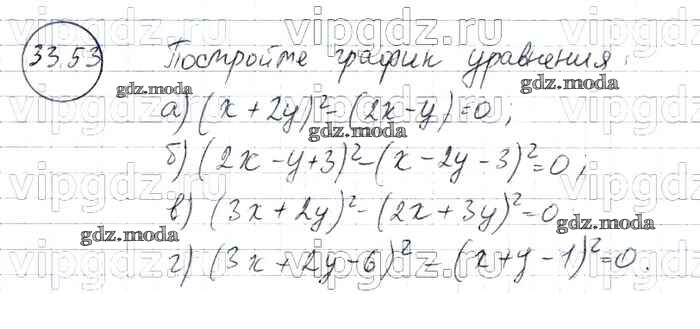 vipgdz.ru vipgdz.ru vipgdz.ru
33.53 Постройте график уравнения:
gdz.moda gdz.moda
а) (x + 2y)² - (2x - y) = 0;
gdz.moda
б) (2x - y + 3)² - (x - 2y - 3)² = 0;
в) (3x + 2y)² - (2x + 3y)² = 0
gdz.moda gdz.moda
г) (3x + 2y - 6)² - (x + y - 1)² = 0.